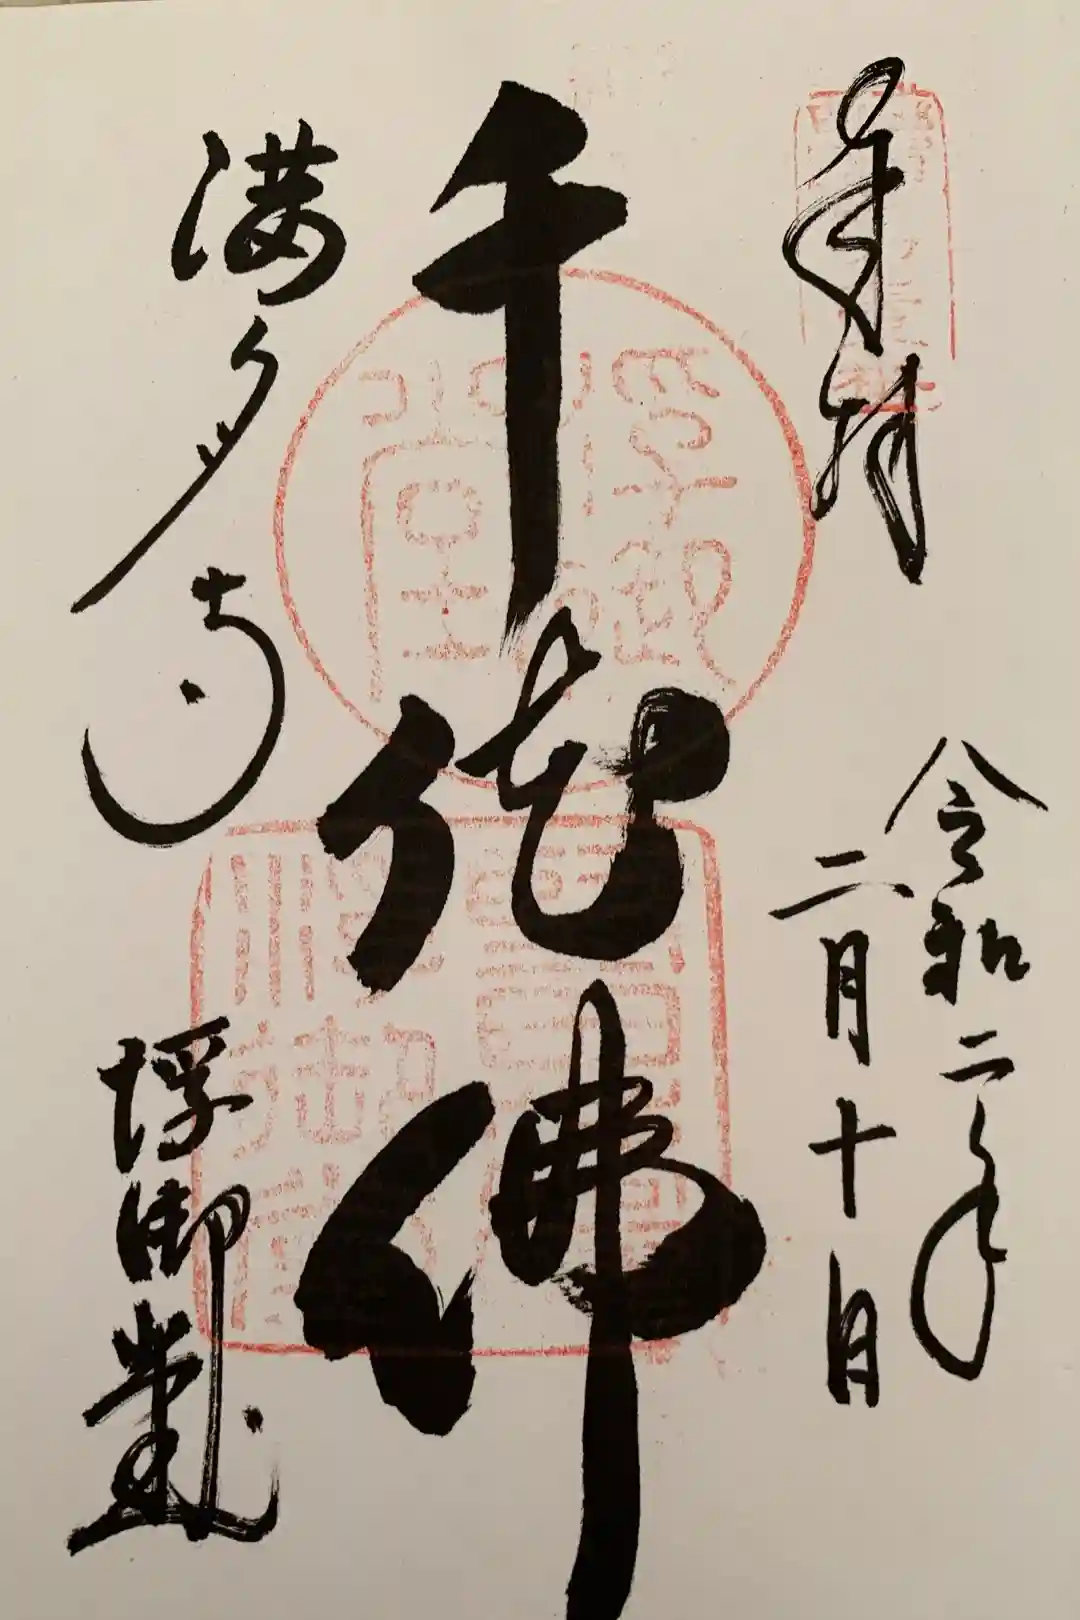 奉拝
令和二年
二月十日
千体佛
満月寺
浮御堂
浮御堂